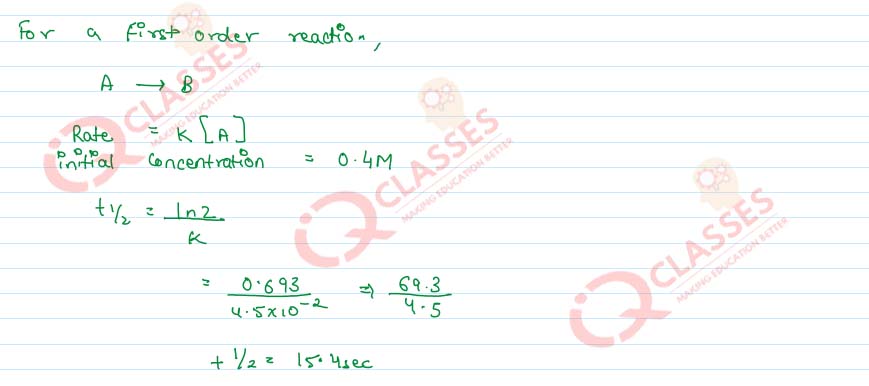 For a first order reaction,
A → B
Rate = K [A]
initial concentration = 0.4M
t1/2 = ln2 / K
= 0.693 / 4.5x10⁻² ⇒ 69.3 / 4.5
t 1/2 = 15.4sec
IQ CLASSES
MAKING EDUCATION BETTER
IQ CLASSES
MAKING EDUCATION BETTER
IQ CLASSES
MAKING EDUCATION BETTER